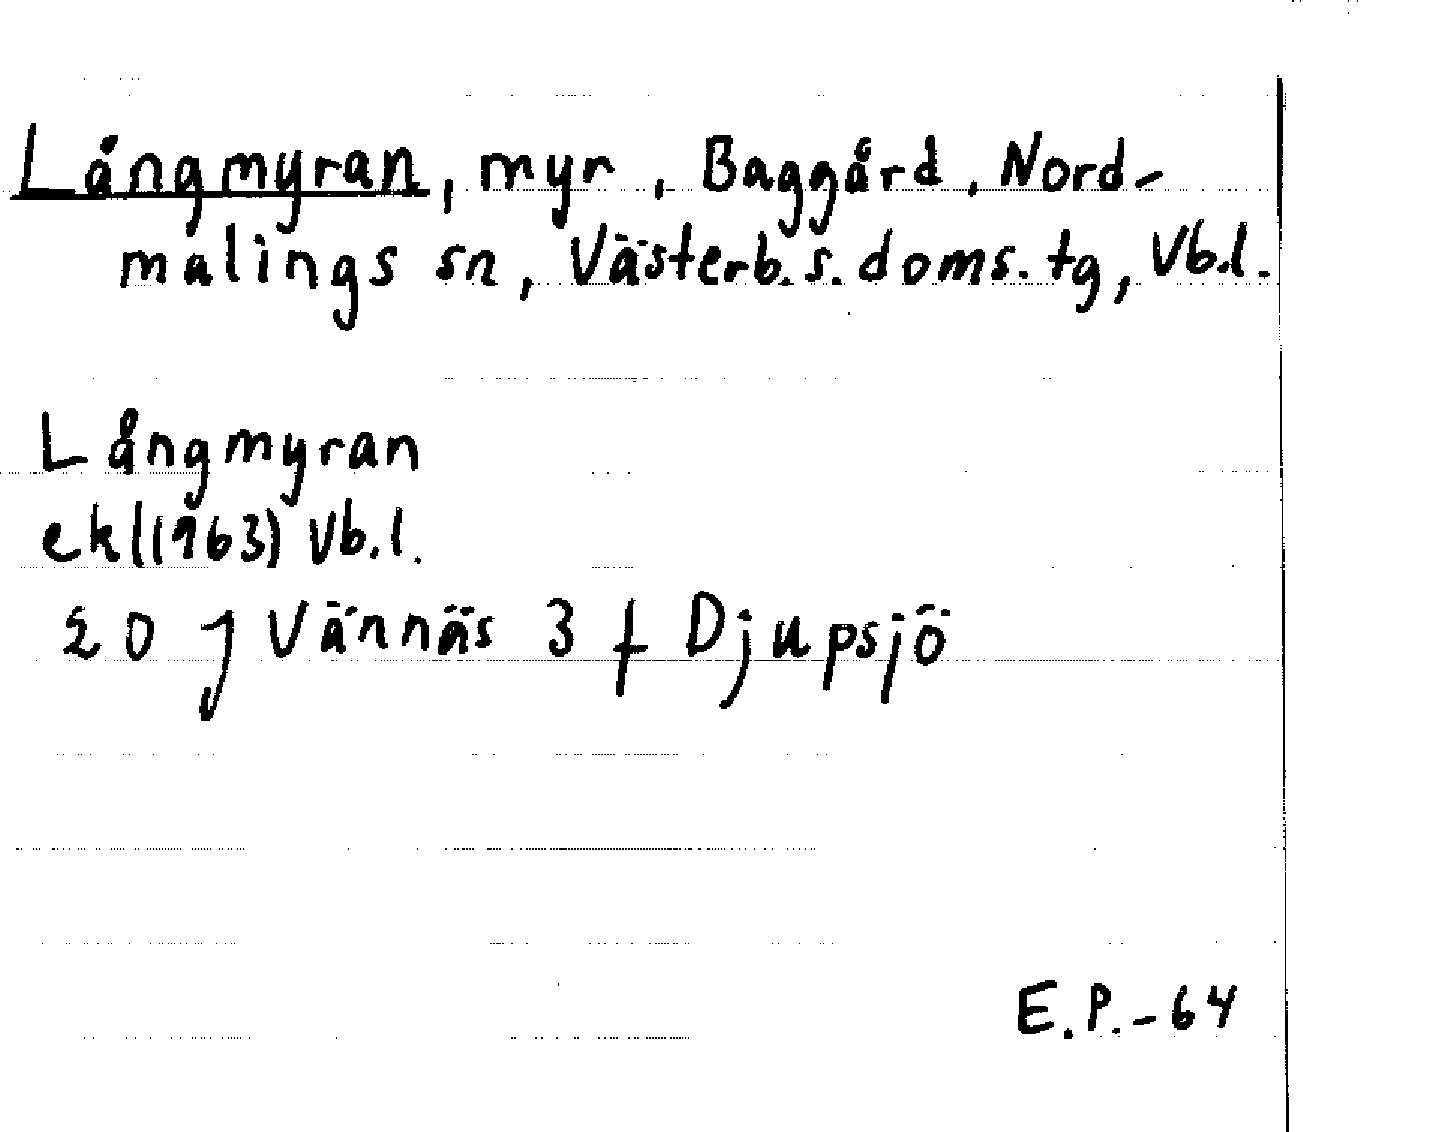 Långmyran, myr, Baggård, Nord-
malings sn, Västerb. s. doms. tg, Vb.l.
Långmyran
ekl(1963) Vb.l.
20 J Vännäs 3 f Djupsjö
E.P.-64